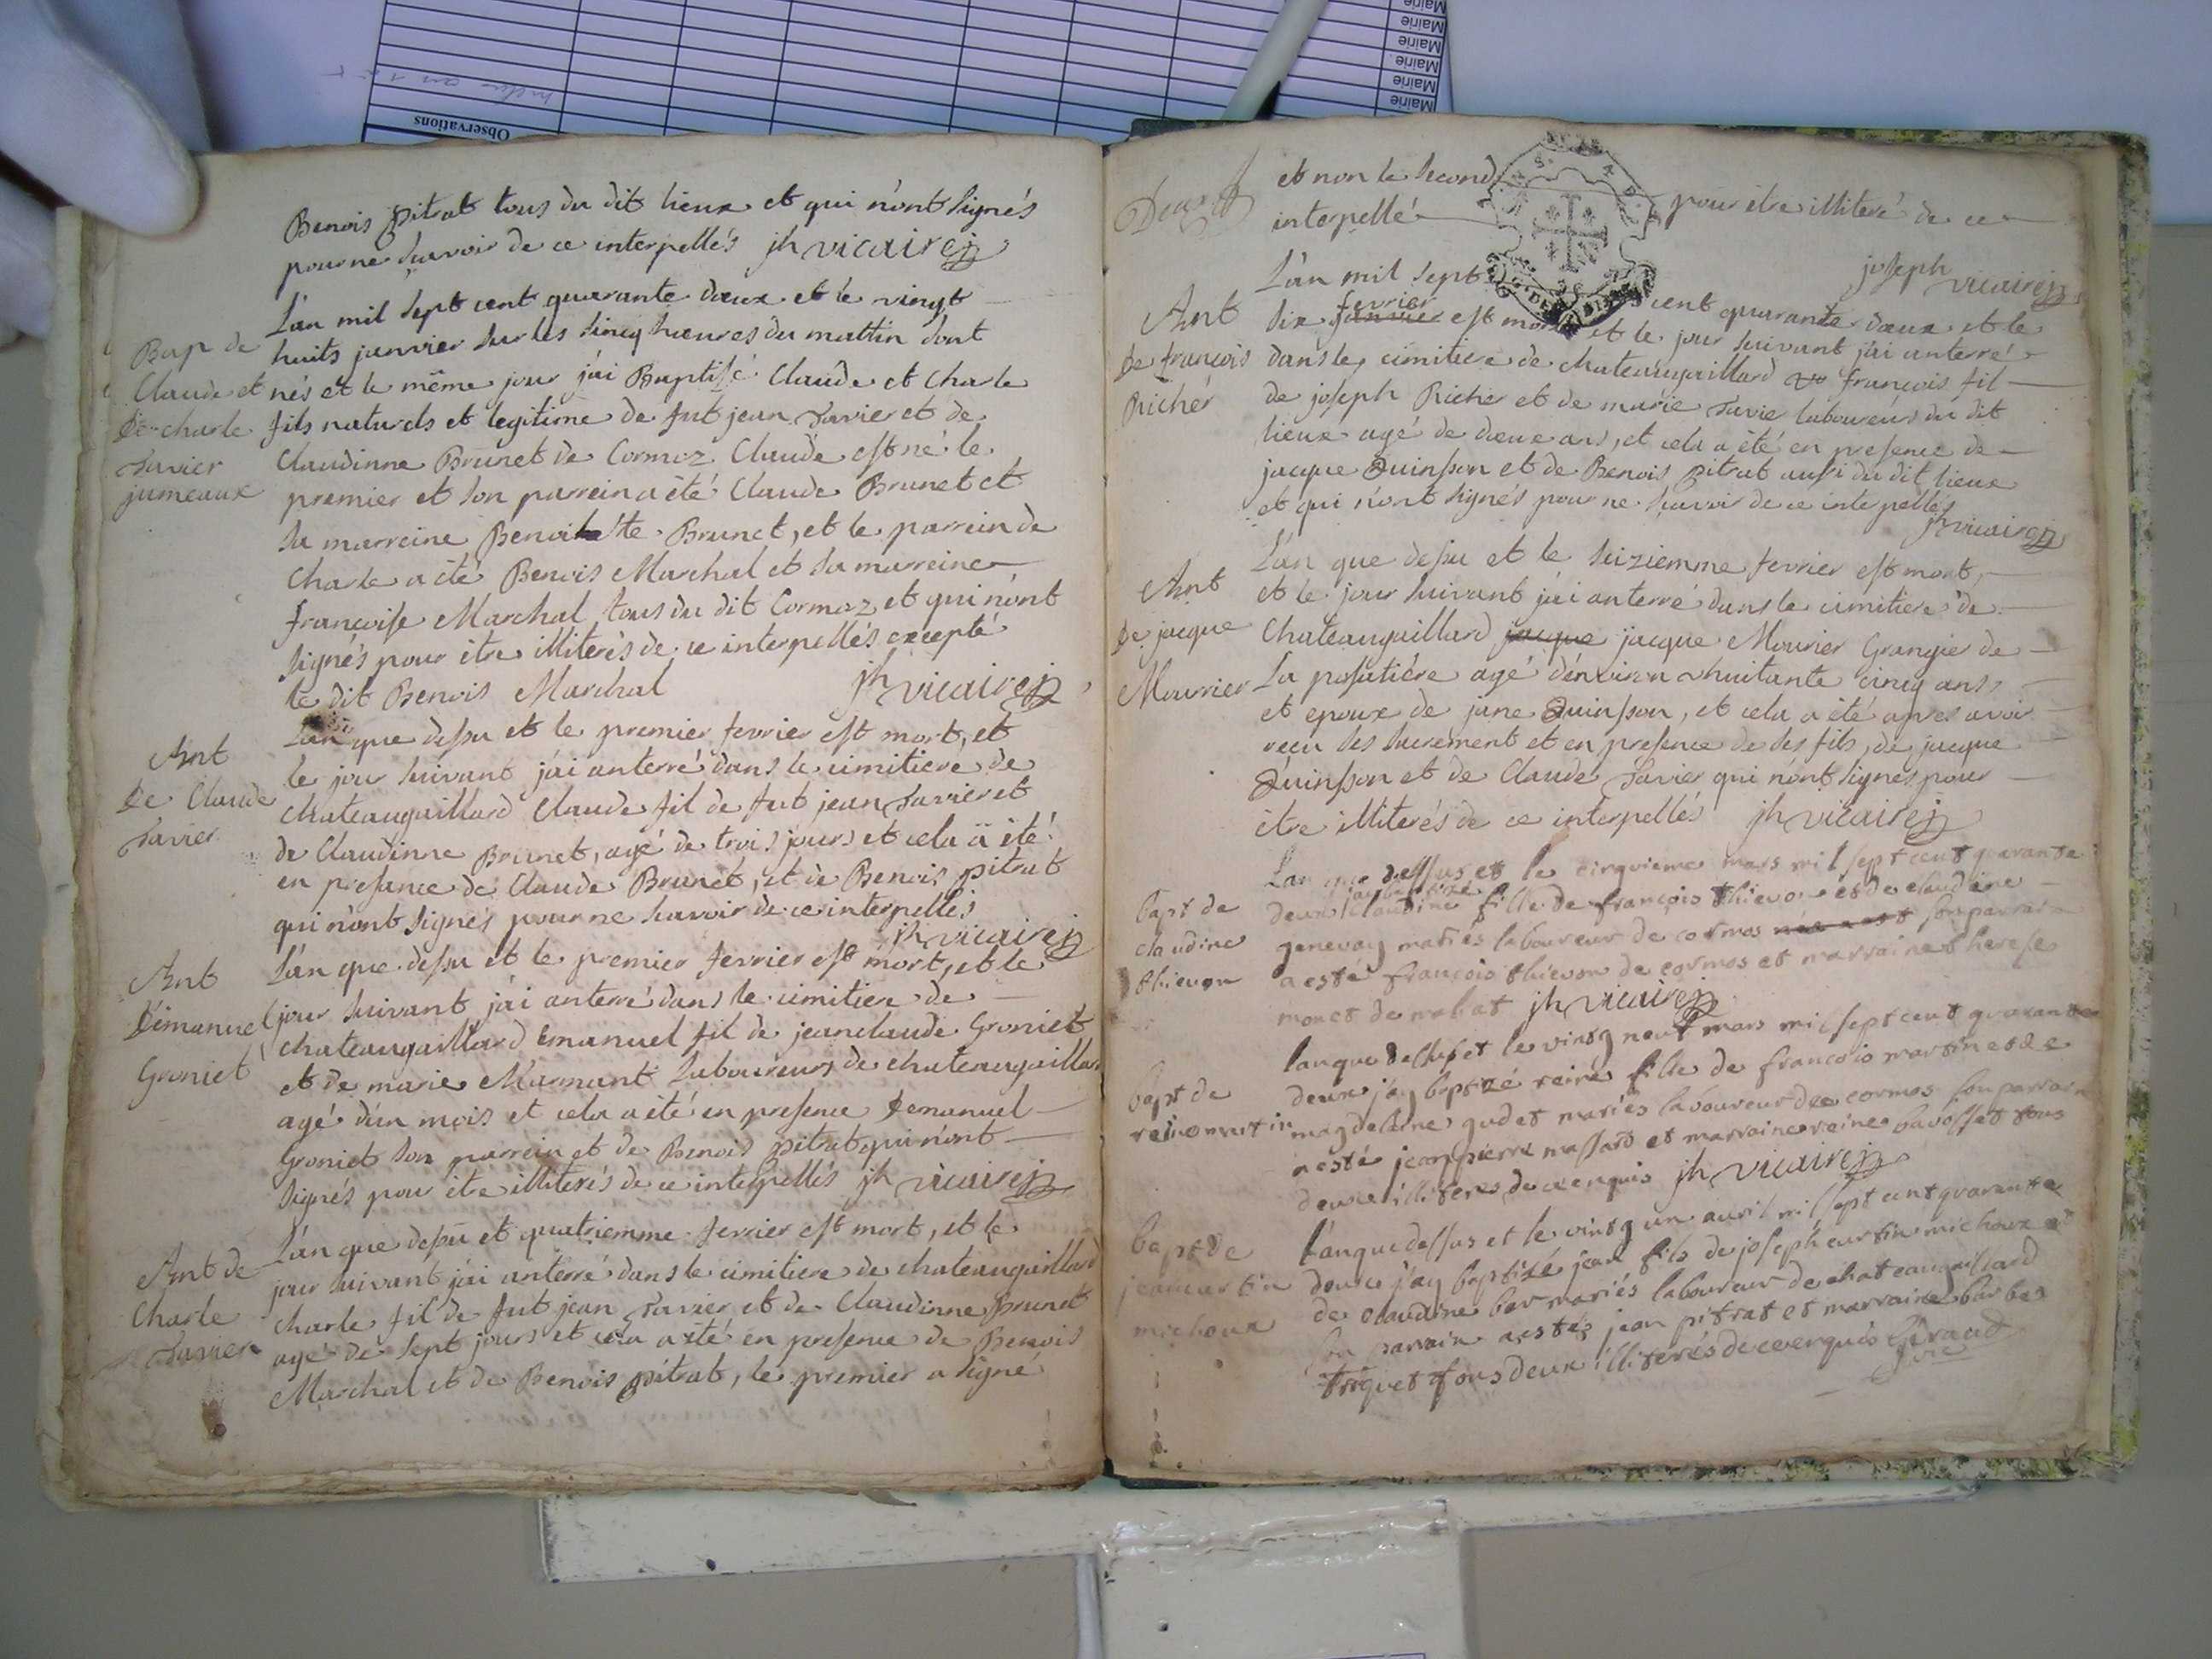 Observations
Mairie
Mairie
Mairie
Mairie
Mairie
Mairie
Benois pitrat tous du dit lieux et qui n'ont signés
pour ne scavoir de ce interpellés jh vicairej
Bap de
Claude et
De charle
Savier
jumeaux
L'an mil sept cent quarante deux et le vingt
huits janvier sur les sincq heures du mattin sont
nés et le même jour j'ai Baptisé Claude et Charle
fils naturels et legitime de fut jean Savier et de
Claudinne Brunet de Cormoz Claude est né le
premier et son parrein a été Claude Brunet et
sa marreine Benoite Brunet, et le parrein de
Charle a été Benois Marchal et sa marreine
francoise Marchal tous du dit Cormoz et qui n'ont
signés pour être illiterés de ce interpellés excepté
le dit Benois Marchal jh vicairej
Ant
De Claude
Savier
L'an que dessu et le premier fevrier est mort, et
le jour suivant j'ai anterré dans le cimitiere de
chateaugaillard Claude fil de fut jean Savier et
de Claudinne Brunet, agé de trois jours et cela a été
en presance de Claude Brunet, et de Benois pitrat
qui n'ont signés pour ne scavoir de ce interpellés
jh vicairej
Ant
D'émanuel
Groniet
L'an que dessu et le premier fevrier est mort, et le
jour suivant j'ai anterré dans le cimitiere de
chateaugaillard Emanuel fil de jeanclaude Groniet
et de marie Marmant laboureurs de chateaugaillard
agé d'un mois et cela a été en presence Demanuel
Groniet son parrein et de Benois pitrat qui n'ont
signés pour être illiterés de ce interpellés jh vicairej
Ant de
Charle
Savier
L'an que dessu et quatriemme fevrier est mort, et le
jour suivant j'ai anterré dans le cimitiere de chateaugaillard
Charle fil de fut jean Savier et de Claudinne Brunet
agé de sept jours et cela a été en presence de Benois
Marchal et de Benois pitrat, le premier a signé
et non le second pour etre illiteré de ce
interpellé
joseph vicairej
Ant
De françois
Richer
L'an mil sept cent quarante deux et le
six janvier fevrier est mort et le jour suivant j'ai anterré
dans le cimitiere de chateaugaillard françois fil
de joseph Richer et de marie Savie laboureurs du dit
lieux agé de deux ans, et cela a été en presence de
jacque Quinsson et de Benois pitrat aussi du dit lieux
et qui n'ont signés pour ne scavoir de ce interpellés
jh vicairej
Ant
De jacque
Mourier
L'an que dessu et le seiziemme fevrier est mort,
et le jour suivant j'ai anterré dans le cimitiere de
Chateaugaillard jacque jacque Mourier Grangier de
La agé d'environ huitante cincq ans
et epoux de jane Quinsson, et cela a été apres avoir
reçu ses sacrement et en presence de ses fils, de jacque
Quinsson et de Claude Savier qui n'ont signés pour
être illiterés de ce interpellés jh vicairej
bapt de
claudine
thievon
L'an que dessus et le cinquieme mars mil sept cent quarante
deux j'ay baptizé Claudine fille de françois thievon et de claudine
genevay mariés laboureur de cormos son parrain
a esté francois thievon de cormos et marraine therese
monet de jh vicairej
bapt de
reine martin
l'anque dessus et le vintg neuf mars mil sept cent quarante
deux j'ay baptizé reine fille de francois martin et de
magdelaine gudet mariés laboureur de cormos son parrain
a esté jeanpierre massard et marraine reine bavosset tous
deux illiteres de ce enquis jh vicairej
bapt de
jean curtin
michoux
l'anque dessus et le vintg un avril mil sept cent quarante
deux j'ay baptizé jean fils de joseph curtin michoux et
de claudine ber mariés laboureur de chateaugaillard
son parrain a esté jean pitrat et marraine barbe
triquet tous deux illiterés de ce enquis Giraud
vic